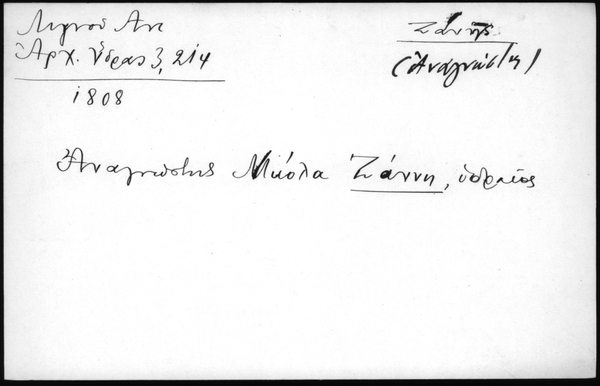 Λιγνού Αντ
Ἀρχ. Ὕδρας 3, 214
1808
Ζάννης
(Ἀναγνώστης)
Ἀναγνώστης Μικόλα Ζάννη, ὑδραῖος